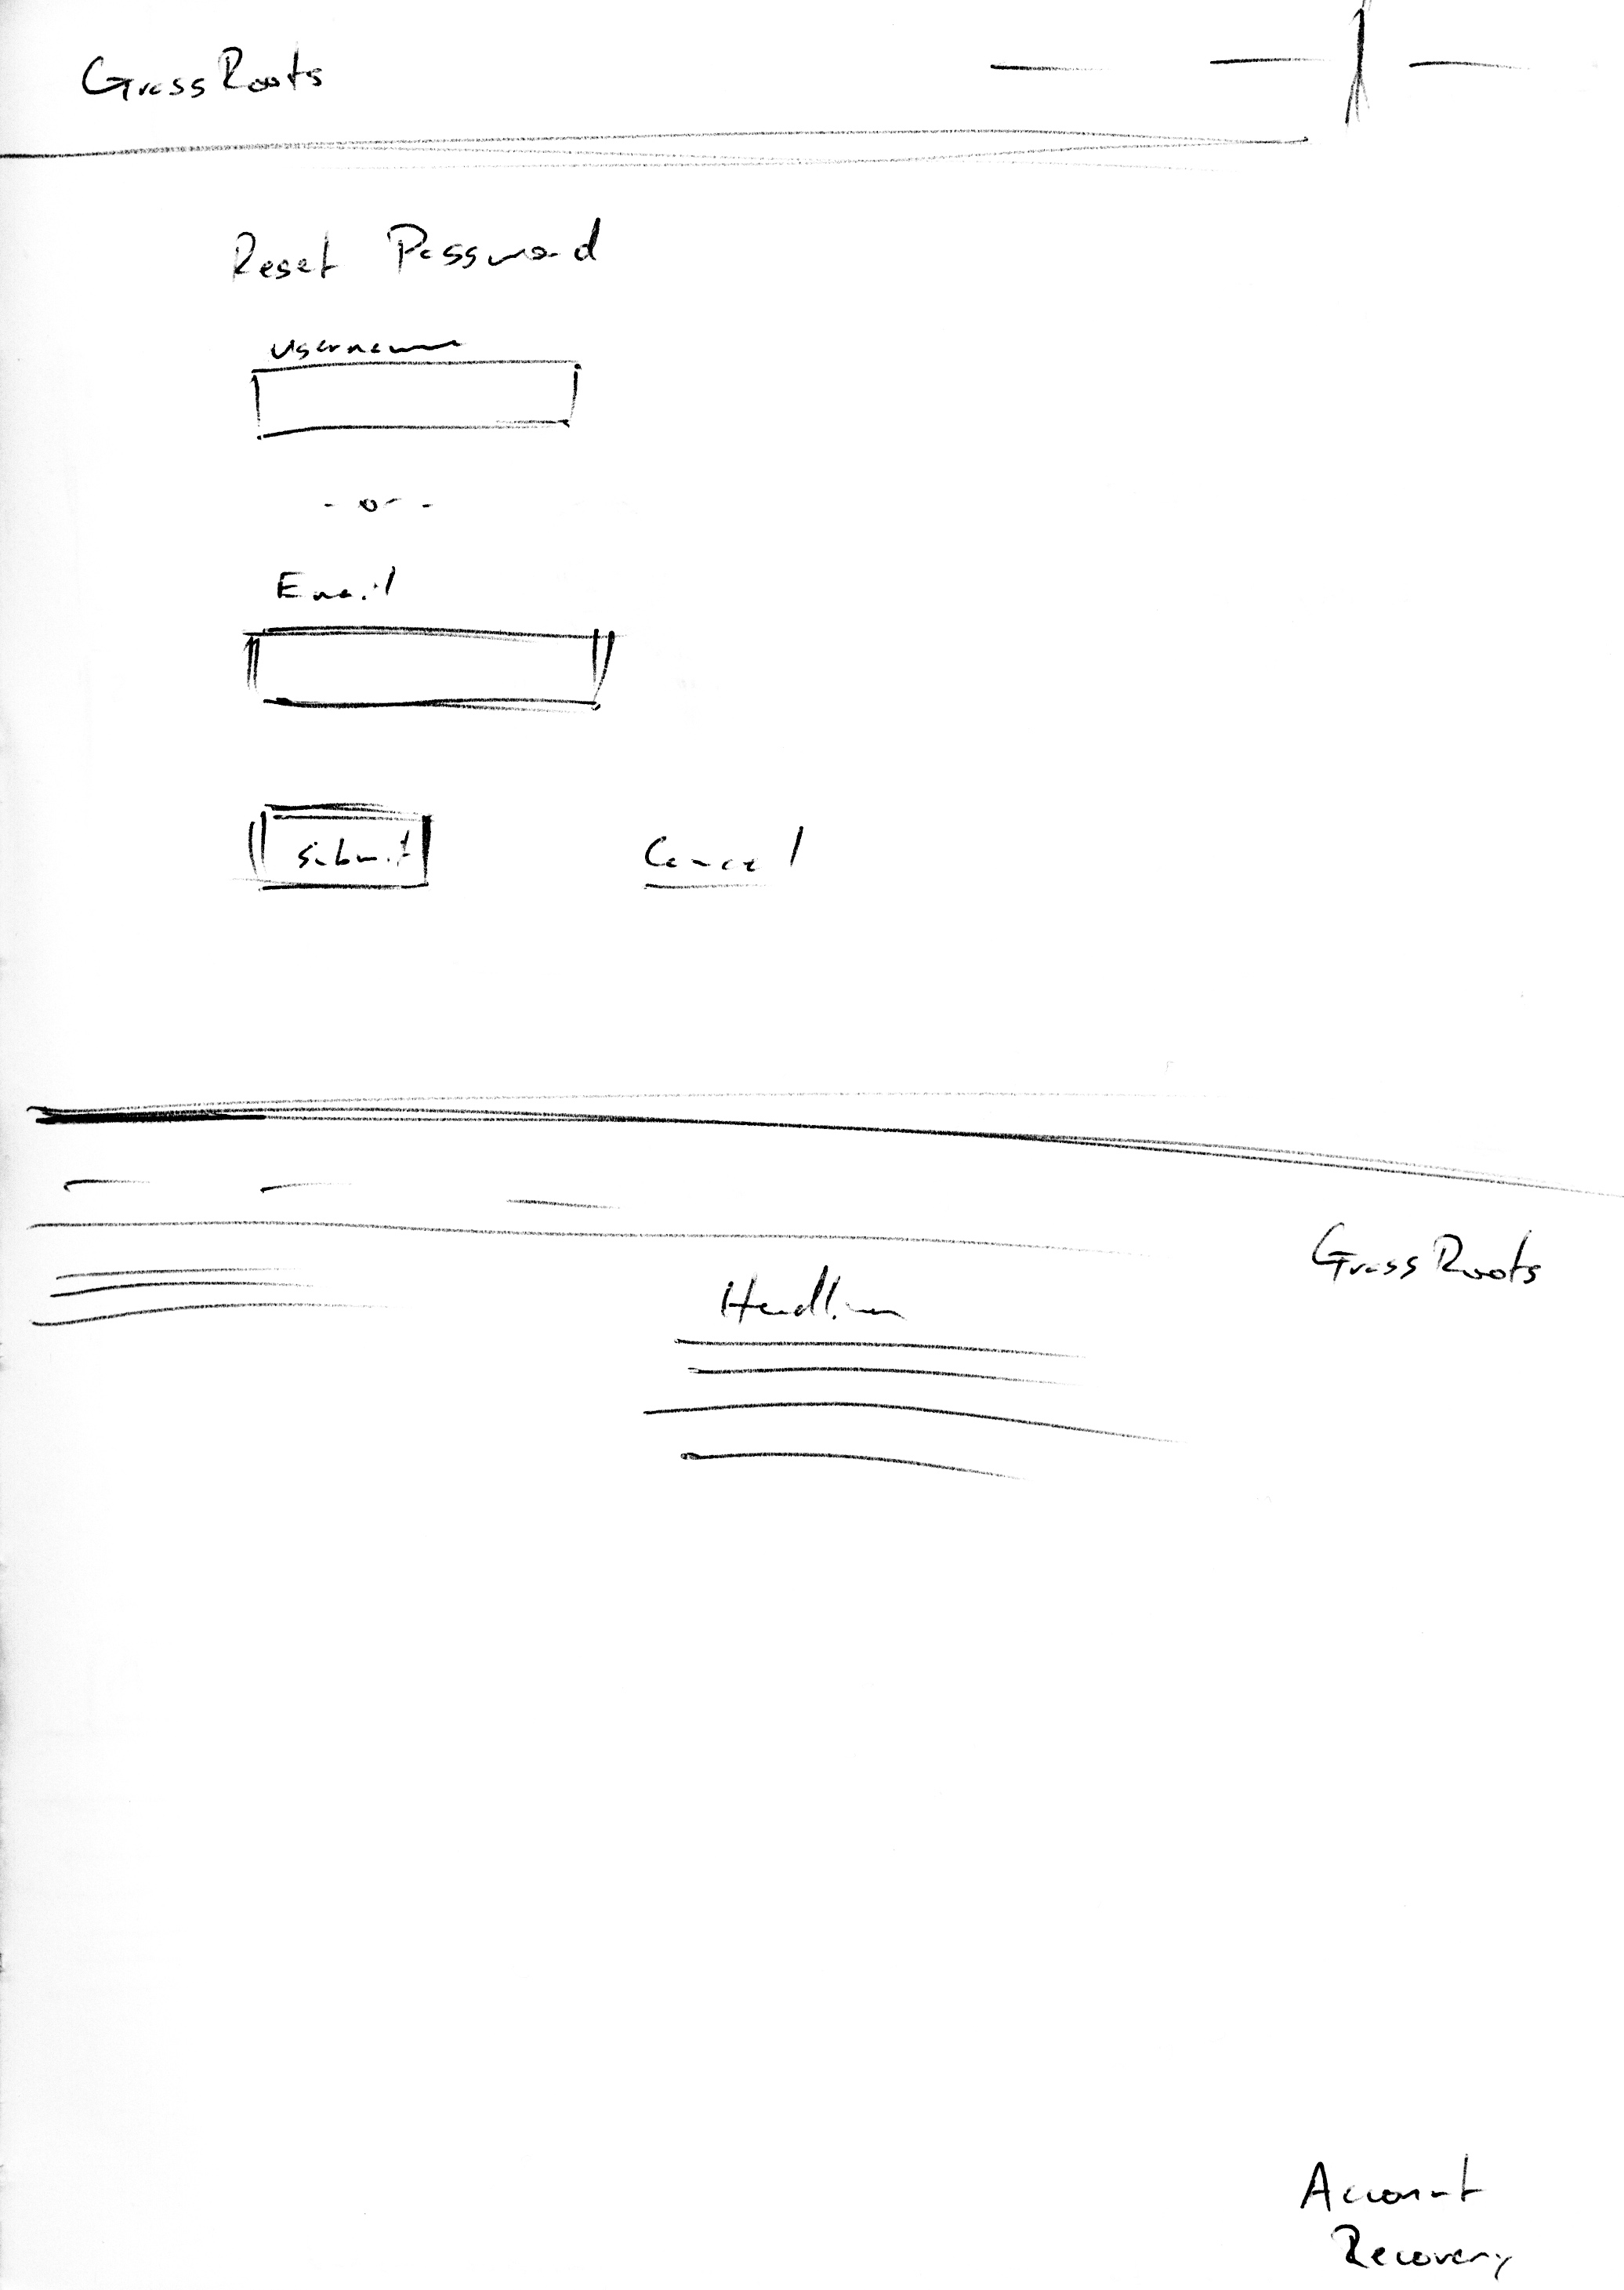 GrassRoots
Reset Password
Username
- or -
Email
Submit
Cancel
GrassRoots
Headline
Account
Recovery